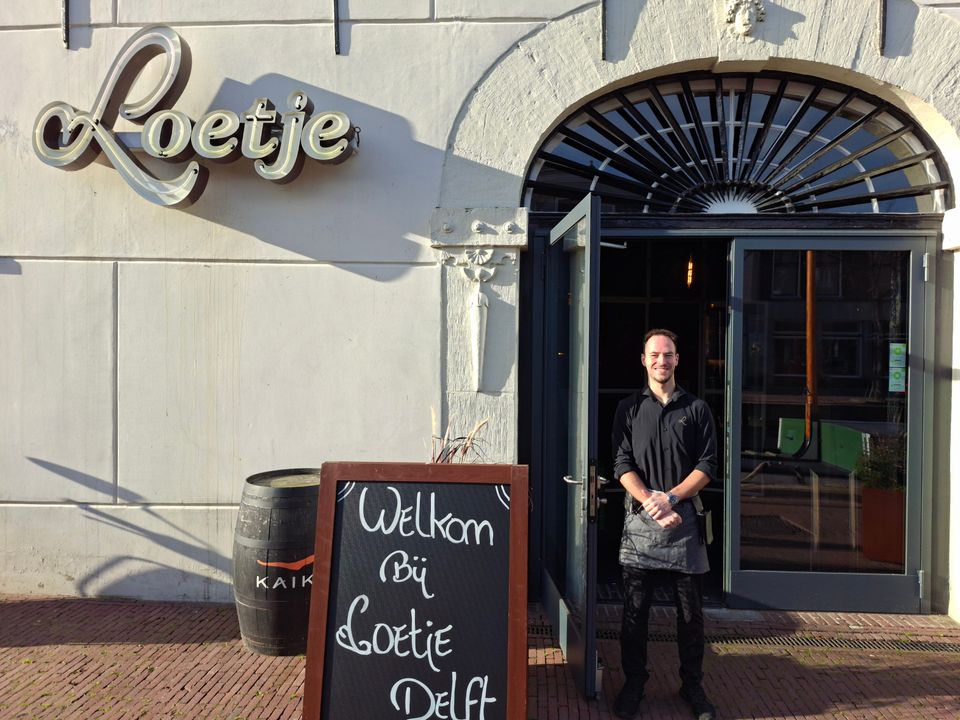 Loetje
KAIK
Welkom
Bij
Loetje
Delft